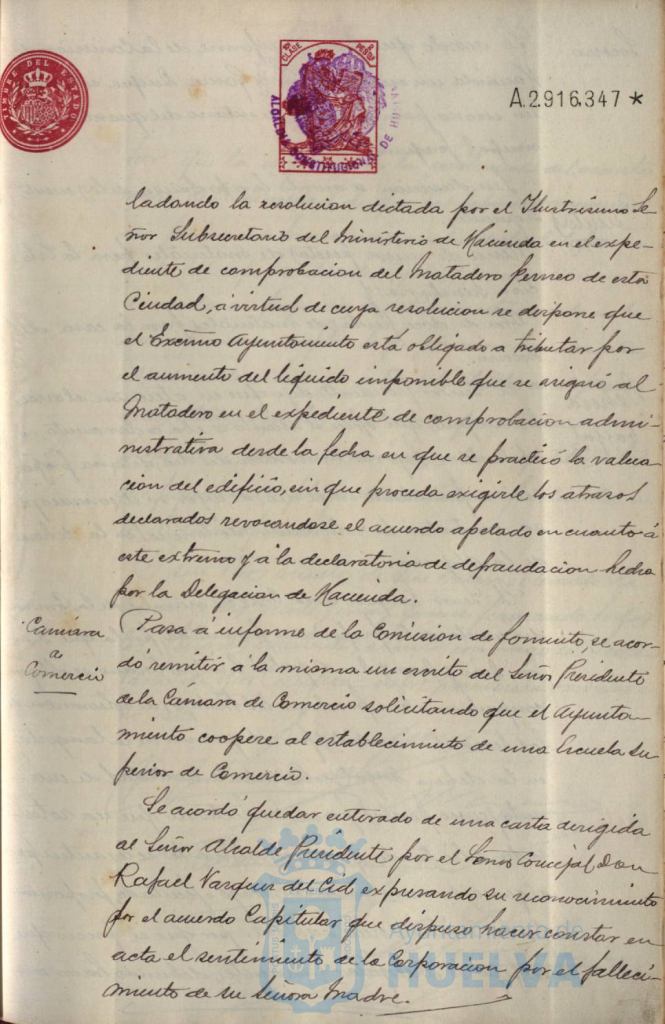 TIMBRE DEL ESTADO
10ª CLASE
2 PESETAS
ALCALDIA CONSTITUCIONAL DE HU
A.2.916.347 *
ladando la resolucion dictada por el Ilustrisimo Se-
ñor Subsecretario del Ministerio de Hacienda en el expe-
diente de comprobacion del Matadero Perneo de esta
Ciudad, á virtud de cuya resolucion se dispone que
el Excmo Ayuntamiento está obligado a tributar por
el aumento del líquido imponible que se asignó al
Matadero en el expediente de comprobacion admi-
nistrativa desde la fecha en que se practicó la valua-
cion del edificio, sin que proceda exigirle los atrasos
declarados revocandose el acuerdo apelado en cuanto á
este extremo y á la declaratoria de defraudacion hecha
por la Delegacion de Hacienda.
Camara
de
Comercio
Pasa á informe de la Comision de fomento, se acor-
dó remitir á la misma un escrito del Señor Presidente
de la Cámara de Comercio solicitando que el Ayunta-
miento coopere al establecimiento de una Escuela Su-
perior de Comercio.
Se acordó quedar enterado de una carta dirigida
al Señor Alcalde Presidente por el Señor Concejal Don
Rafael Vazquez del Cid expresando su reconocimiento
por el acuerdo Capitular que dispuso hacer constar en
acta el sentimiento de la Corporacion por el falleci-
miento de su Señora Madre.
Ayuntamiento de
HUELVA